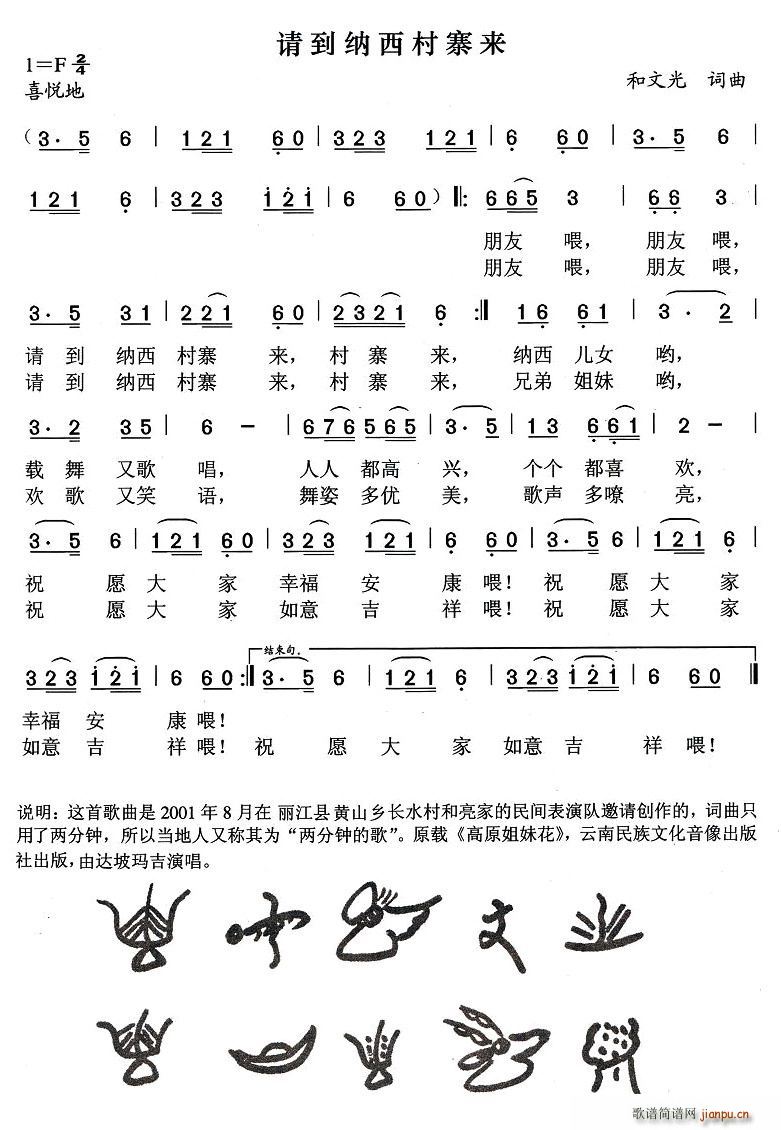 请到纳西村寨来
1=F 2/4
喜悦地
和文光 词曲
(3· 5 6 | 1 2 1 6 0 | 3 2 3 1 2 1 | 6 6 0 | 3· 5 6 |
1 2 1 6 | 3 2 3 1 2 1 | 6 6 0) ‖: 6 6 5 3 | 6 6 3 |
朋友 喂， 朋友 喂，
朋友 喂， 朋友 喂，
3· 5 3 1 | 2 2 1 6 0 | 2 3 2 1 6 :‖ 1 6 6 1 | 3· 2 |
请 到 纳西 村寨 来， 村 寨 来， 纳西 儿女 哟，
请 到 纳西 村寨 来， 村 寨 来， 兄弟 姐妹 哟，
3· 2 3 5 | 6 － | 6 7 6 5 6 5 | 3· 5 | 1 3 6 6 1 | 2 － |
载 舞 又歌 唱， 人人 都高 兴， 个个 都喜 欢，
欢 歌 又笑 语， 舞姿 多优 美， 歌声 多嘹 亮，
3· 5 6 | 1 2 1 6 0 | 3 2 3 1 2 1 | 6 6 0 | 3· 5 6 | 1 2 1 6 |
祝 愿 大 家 幸福 安 康 喂！ 祝 愿 大 家
祝 愿 大 家 如意 吉 祥 喂！ 祝 愿 大 家
结束句.
3 2 3 1 2 1 | 6 6 0 :‖ 3· 5 6 | 1 2 1 6 | 3 2 3 1 2 1 | 6 6 0 ‖
幸福 安 康 喂！
如意 吉 祥 喂！ 祝 愿 大 家 如意 吉 祥 喂！
说明：这首歌曲是 2001 年 8 月在 丽江县 黄山乡长水村和亮家的民间表演队邀请创作的，词曲只
用了两分钟，所以当地人又称其为“两分钟的歌”。原载《高原姐妹花》，云南民族文化音像出版
社出版，由达坡玛吉演唱。
歌谱简谱网 jianpu.cn